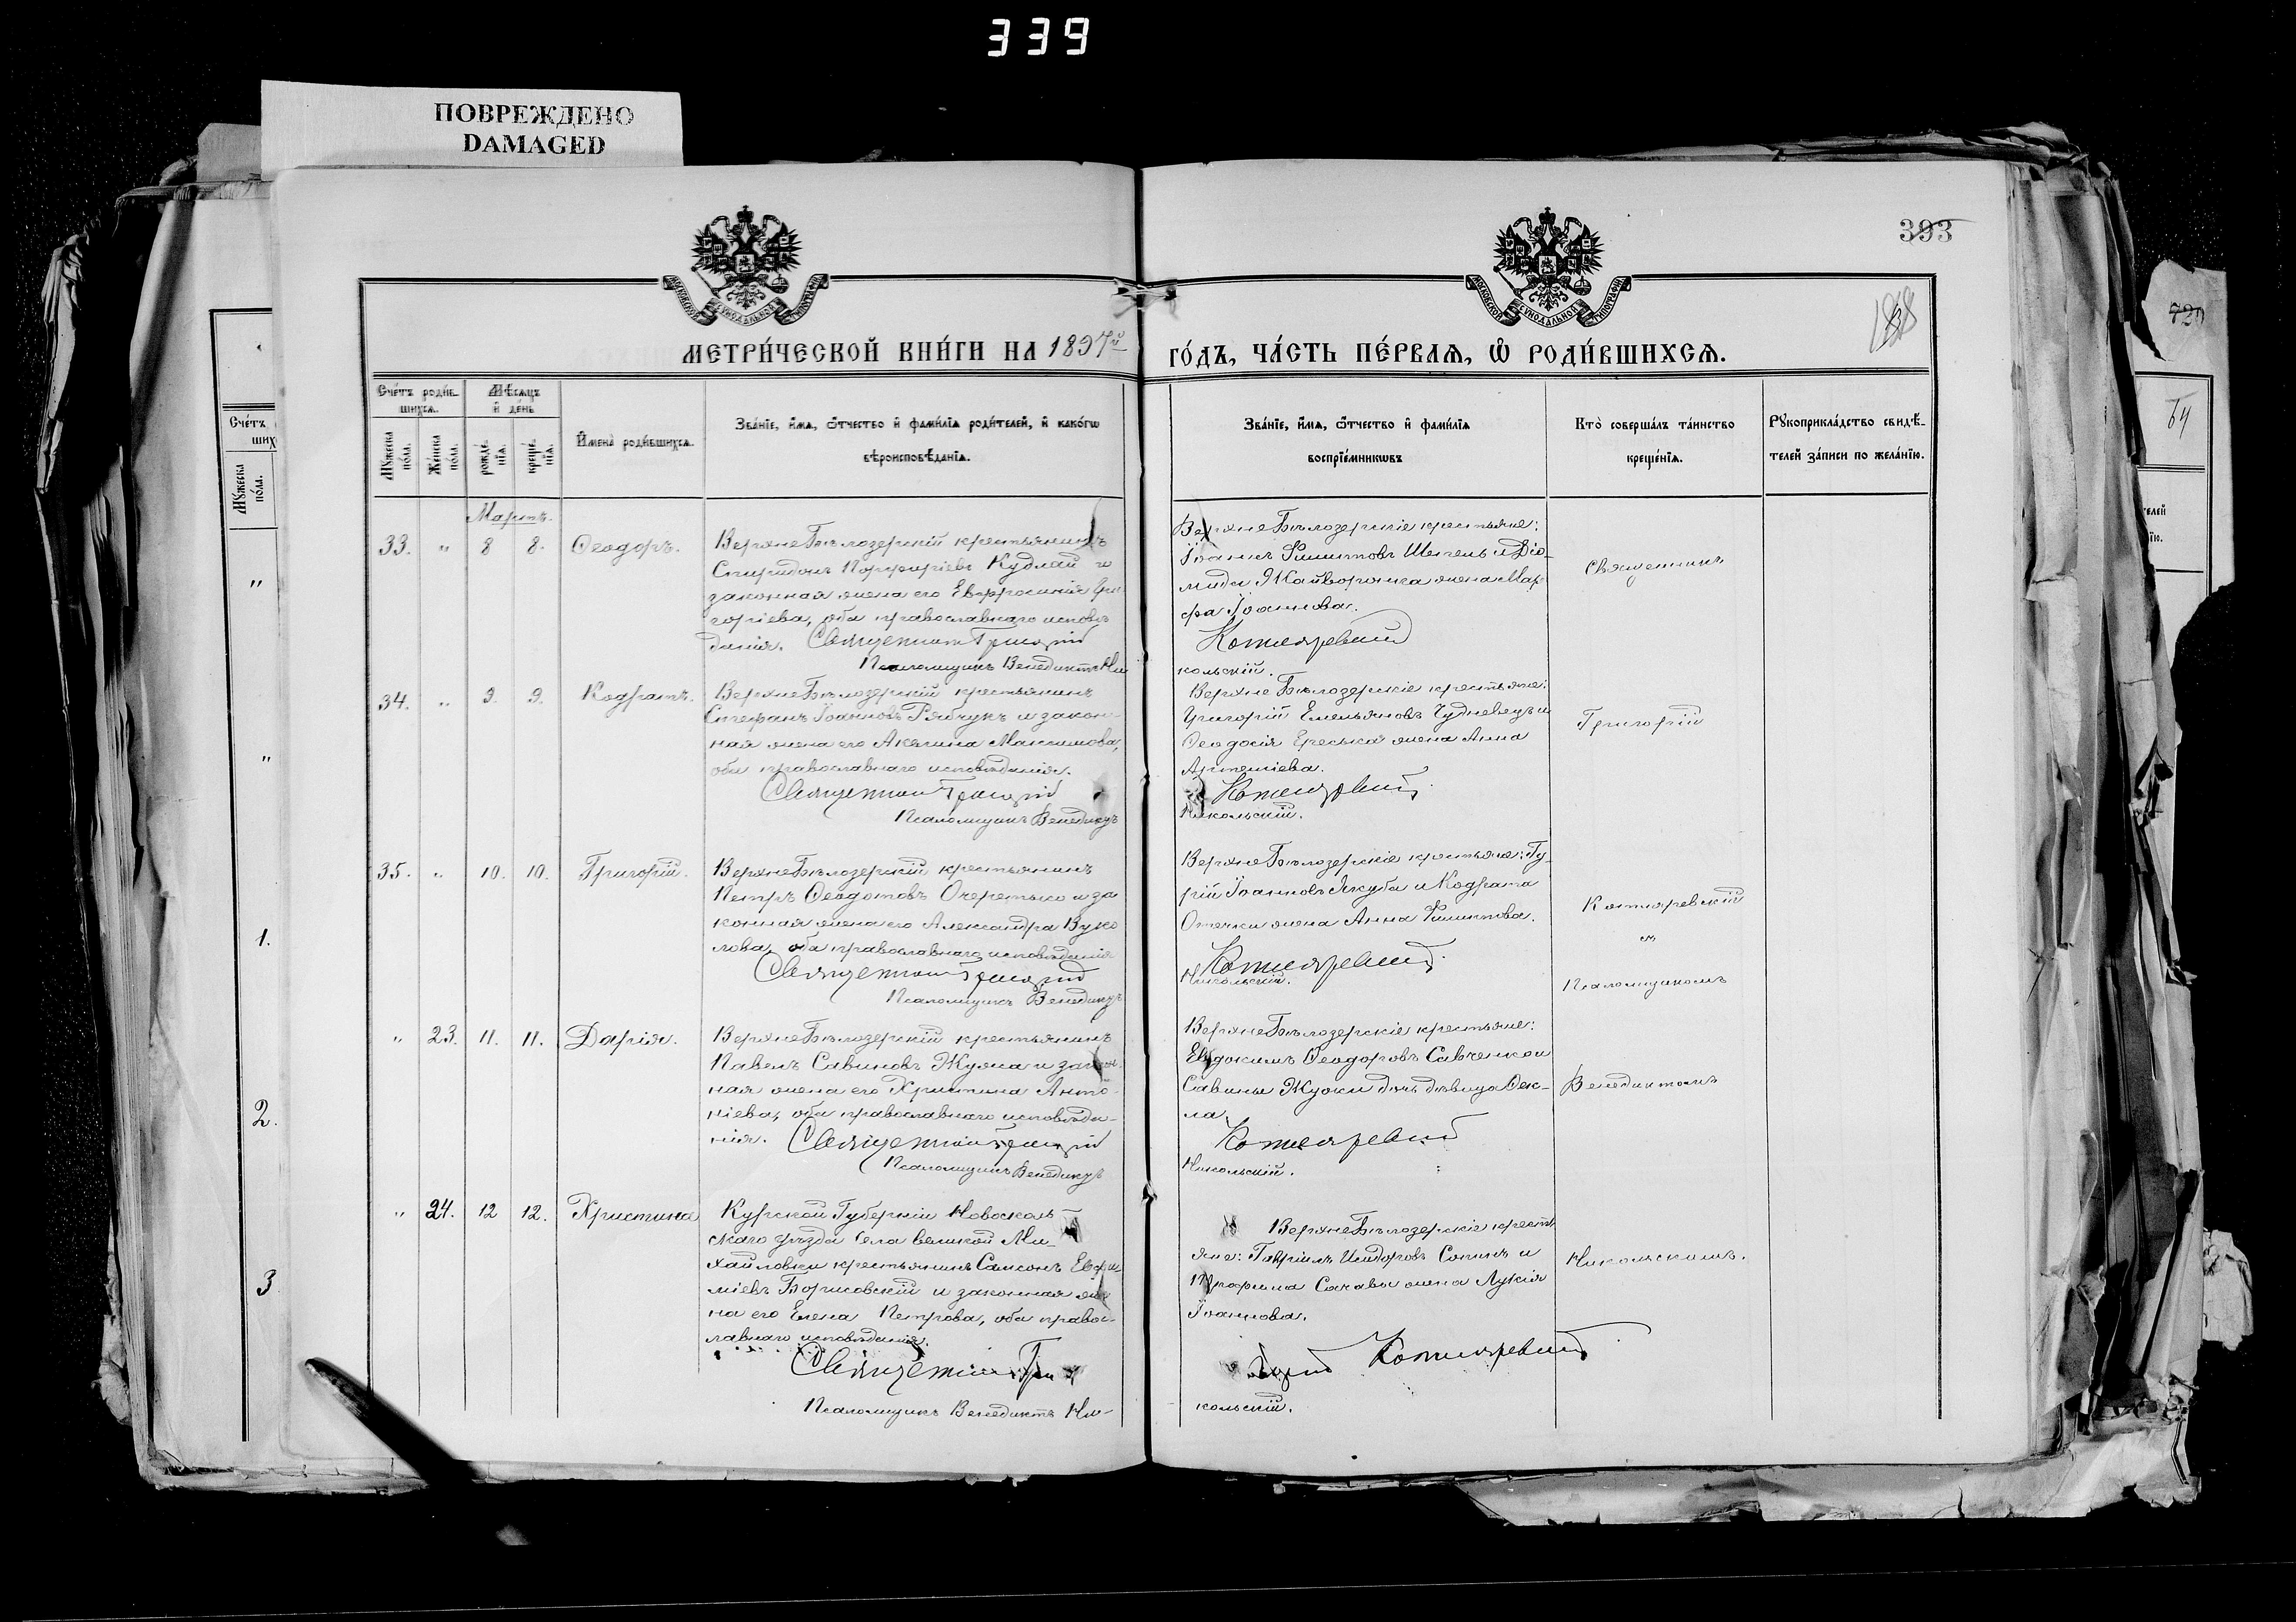 339
ПОВРЕЖДЕНО
DAMAGED
393
МЕТРИ́ЧЕСКОЙ КНИ́ГИ НА 1897й
ГО́ДЪ, ЧА́СТЬ ПЕ́РВАѦ, Ѡ РОДИ́ВШИХСѦ.
Сче́тъ роди́в-
шихсѧ.
Мѣ́сѧцъ
и де́нь
Мꙋ́жеска по́ла.
Же́нска по́ла.
рожде́нїѧ.
креще́нїѧ.
Имена̀ роди́вшихсѧ.
Зва́нїе, и́мѧ, ѻ҆́тчество и фами́лїѧ роди́телей, и како́гѡ
вѣроисповѣ́данїѧ.
Зва́нїе, и́мѧ, ѻ҆́тчество и фами́лїѧ
воспрїе́мникѡвъ
Кто̀ соверша́лъ та́инство
креще́нїѧ.
Рꙋкоприкла́дство свидѣ́-
телей за́писи по жела́нїю.
Мартъ.
33. " 8 8. Ѳеодоръ.
ВерхнеБѣлозерскій крестьянинъ
Спиридонъ Порфиріевъ Кудлай и
законная жена его Евфросинія Гри
горіева, оба православнаго исповѣ
данія. Священникъ Григорій
Псаломщикъ Венедиктъ Ни
ВерхнеБѣлозерскіе крестьяне:
Іоаннъ Филипповъ Шепель и Діо-
мида Жайворонка жена Мар
фа Іоаннова.
Котляревскій
кольскій.
Священникъ
34. " 9. 9. Кодратъ.
ВерхнеБѣлозерскій крестьянинъ
Стефанъ Іоанновъ Рябчукъ и закон-
ная жена его Акилина Максимова,
оба православнаго исповѣданія.
Священникъ Григорій
Псаломщикъ Венедиктъ
ВерхнеБѣлозерскіе крестьяне:
Григорій Емельяновъ Чудневецъ и
Ѳеодосія Ереська жена Анна
Артеміева.
Котляревскій.
Никольскій.
Григорій
35. " 10. 10. Григорій.
ВерхнеБѣлозерскій крестьянинъ
Петръ Ѳеодотовъ Очеретько и за
конная жена его Александра Вуко
лова, оба православнаго исповѣданія
Священникъ Григорій
Псаломщикъ Венедиктъ
ВерхнеБѣлозерскіе крестьяне: Гу-
рій Іоанновъ Якуба и Кодрата
жена Анна Филиппова.
Котляревскій.
Никольскій.
Котляревскій
съ
Псаломщикомъ
" 23. 11. 11. Дарія.
ВерхнеБѣлозерскій крестьянинъ
Павелъ Савиновъ Жужа и закон
ная жена его Христина Анто-
ніева, оба православнаго исповѣда-
нія. Священникъ Григорій
Псаломщикъ Венедиктъ
ВерхнеБѣлозерскіе крестьяне:
Евдокимъ Ѳеодоровъ Савченко и
Савины Жужи дочь дѣвица Ѳек-
ла
Котляревскій
Никольскій.
Венедиктомъ
" 24. 12 12. Христина
Курской Губерніи Новосколь-
скаго уѣзда села Великой Ми-
хайловки крестьянинъ Самсонъ Евфи
міевъ Борисовскій и законная же
на его Елена Петрова, оба правос-
лавнаго исповѣданія.
Священникъ Гри
Псаломщикъ Венедиктъ Ни-
ВерхнеБѣлозерскіе кресть
яне: Гавріилъ Исидоровъ Сопинъ и
Трофима Сакавы жена Лукія
Іоаннова.
горій Котляревскій
кольскій.
Никольскимъ.
"
"
1.
2.
3
729
64